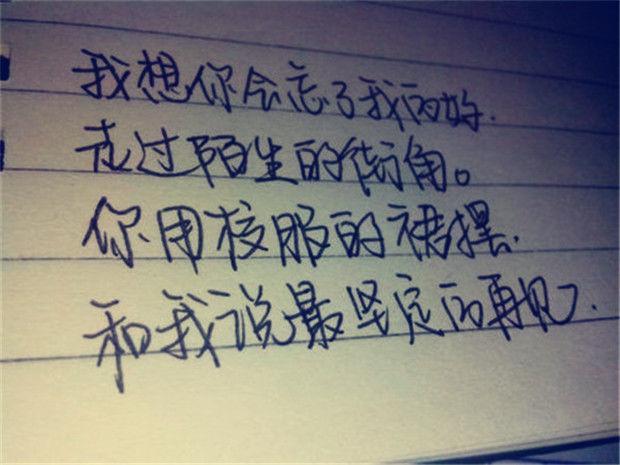 我想你会忘了我的好.
走过陌生的街角。
你用校服的裙摆.
和我说最坚定的再见.